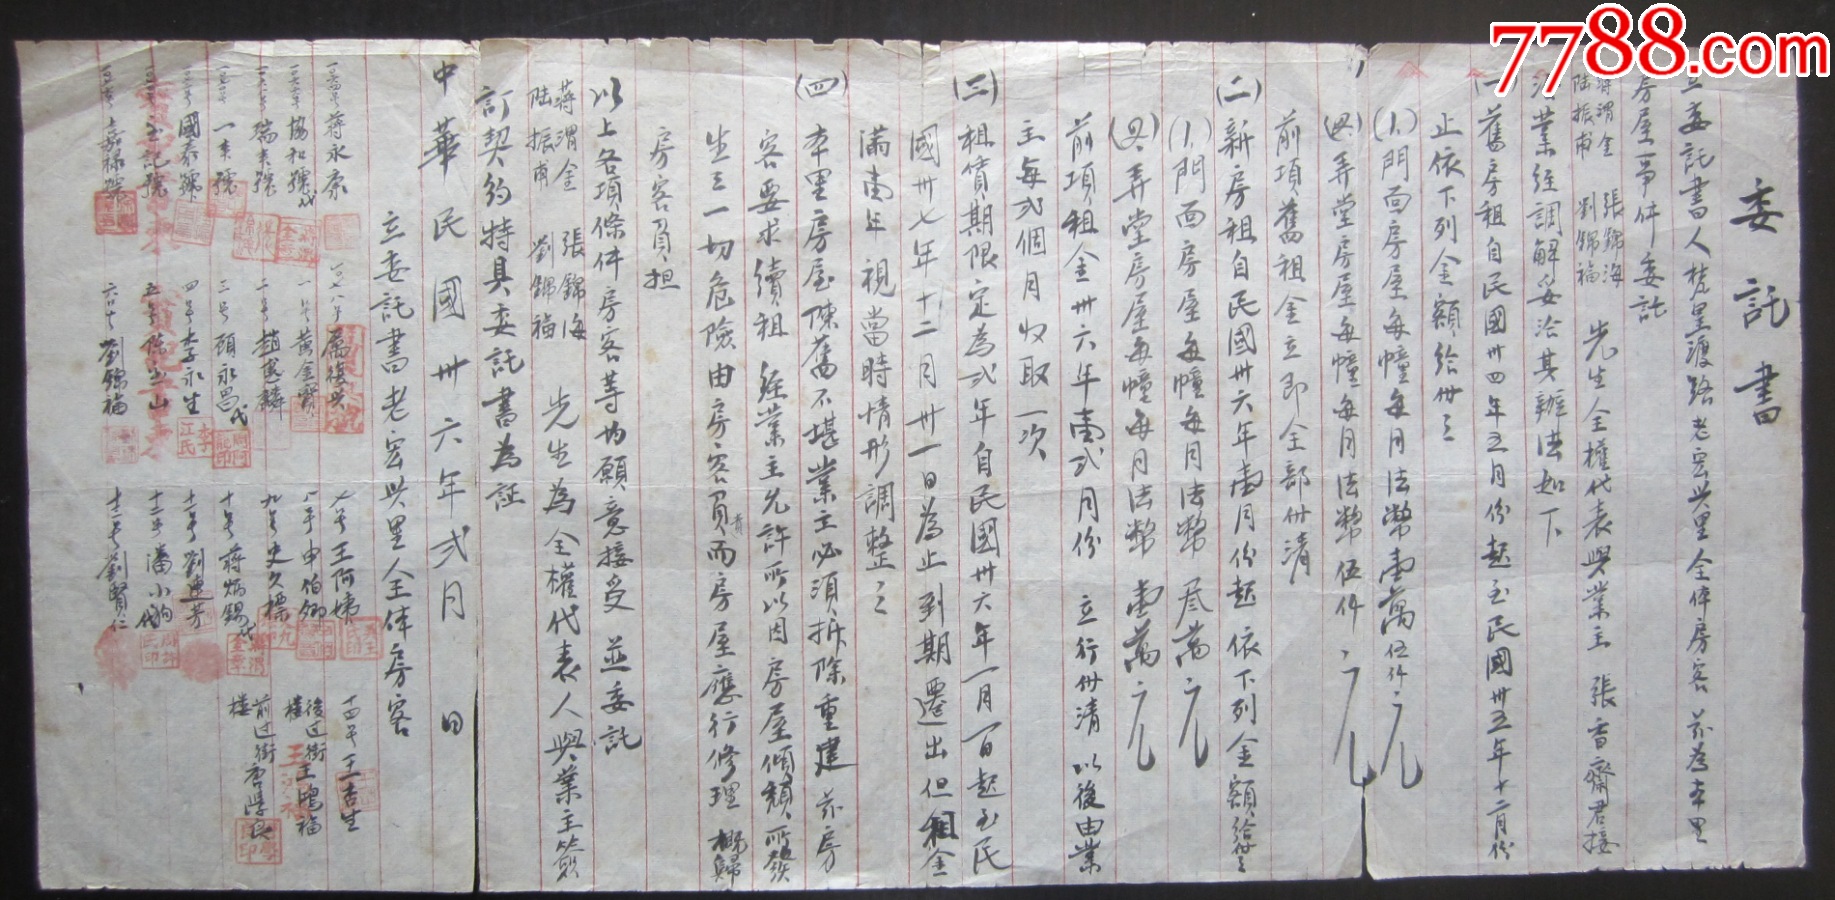 7788.com
委託書
立委託書人梵皇渡路老宏興里全体房客 茲為本里
房屋事件委託
蔣渭金 張錦海
陸振甫 劉錦福 先生全權代表與業主 張香齋君接
洽業經調解妥洽其辦法如下
(一)舊房租自民國卅四年五月份起至民國卅五年十二月份
止依下列金額給付之
(1)門面房屋每幢每月法幣壹萬伍仟元
(2)弄堂房屋每幢每月法幣伍仟元
前項舊租金立即全部付清
(二)新房租自民國卅六年壹月份起 依下列金額給付之
(1)門面房屋每幢每月法幣叁萬元
(2)弄堂房屋每幢每月法幣壹萬元
前項租金卅六年壹弍月份 立行付清 以後由業
主每弍個月收取一次
(三)租賃期限定為弍年自民國卅六年一月一日起至民
國卅七年十二月卅一日為止到期遷出但租金
滿壹年視當時情形調整之
(四)本里房屋陳舊不堪業主必須拆除重建 茲房
客要求續租 經業主允許所以因房屋傾頹所發
生之一切危險由房客負責而房屋應行修理概歸
房客負担
以上各項條件房客等均願意接受 並委託
蔣渭金 張錦海
陸振甫 劉錦福 先生為全權代表人與業主簽
訂契約特具委託書為証
中華民國卅六年弍月 日
立委託書老宏興里全体房客
蔣永泰
協和號代
瑞大號
一大號
國泰號
玉記號
嘉祿號
萬復興
一號 黃金寶
二號 趙惠麟
三號 顧永昌代
四號 李永生
五號 陸少山
六號 劉錦福
七號 王阿娥
八號 申伯卿
九號 史久標
十號 蔣炳錫代
十一號 劉連芳
十二號 潘小狗代
十三號 劉賢仁
十四號 王杏生
後過街樓 王鴻福
前過街樓 唐學良